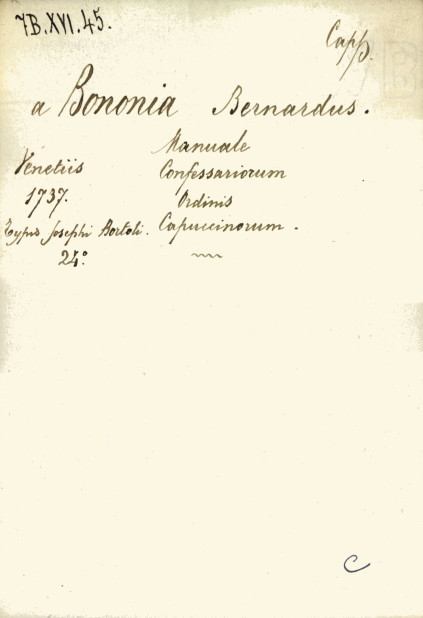 7B.XVI.45.
Capp.
a Bononia Bernardus.
Manuale
Venetiis Confessariorum
1737. Ordinis
Typis Josephi Bortoli. Capuccinorum.
24º
C